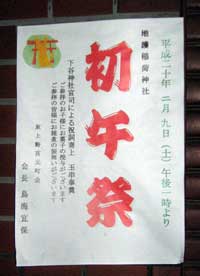 平成二十年 二月九日(土)午後一時より
地護稲荷神社
初午祭
下谷神社宮司による祝詞奏上 玉串奉奠
ご参拝のお子様にお菓子の授与がございます
ご参拝の皆様にお神酒の振舞いがございます
東上野宮元町会
会長 鳥海宜保